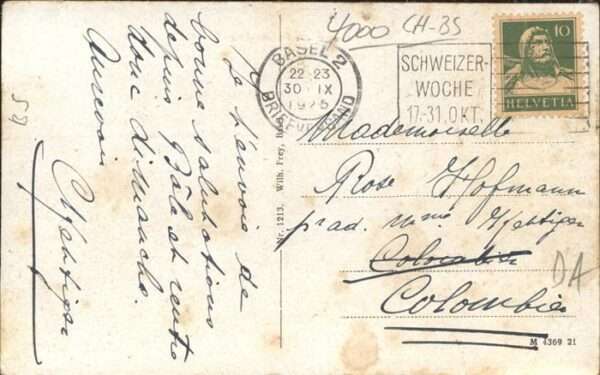 Je t'envoie de
bonne salutations
depuis Bâle et rentre
donc dimanche.
Aurevoir
58
4000 CH-BS
BASEL 2
22-23
30. IX
1925
BRIEFVERSAND
SCHWEIZER-
WOCHE
17.-31. OKT.
10
HELVETIA
Mademoiselle
Rose Hofmann
prad. Mme
Colombier
DA
Nr. 1213. Wilh. Frey, Basel
M 4369 21